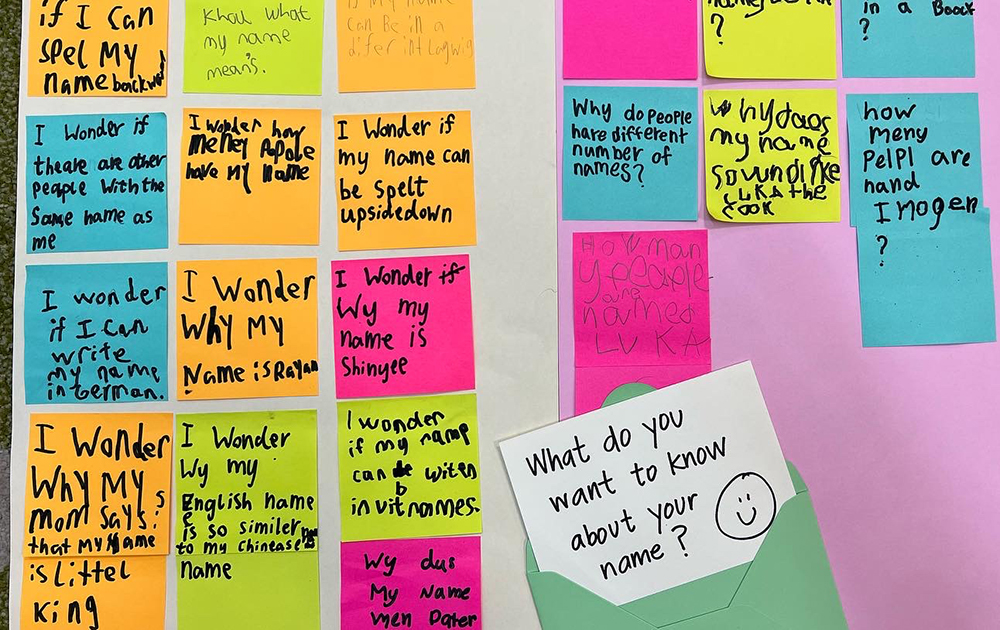 if I Can
spel My
name backw
what
my name
means.
is my name
can Be in a
difer int Lagwig
?
in a Boock
?
I Wonder if
theare are other
people with the
Same name as
me
I Wonder how
Meney Pepole
have My Name
I Wonder if
my name can
be spelt
upsidedown
Why do people
hare different
number of
names?
Why daos
my name
sound like
LUKA the
cook
how
meny
PelPl are
nand
Imogen
?
I wonder
if I Can
write
my name
in German.
I Wonder
Why My
Name is Rayan
I Wonder if
Wy my
name is
Shinyee
How man
y people
are
names
LUKA
I Wonder
Why My
mom says
that my Name
is Littel
King
I Wonder
Wy my
English name
is so similer
to my Chinease
name
I wonder
if my name
can be witen
in vitnames.
Wy dus
My Name
men Pater
What do you
want to know
about your
name?